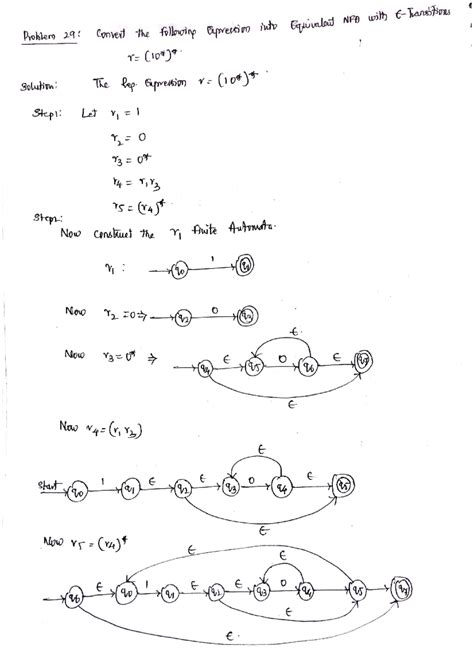 Problem 29: Convert the following Expression into Equivalent NFA with ε-Transitions
r = (10*)*
Solution: The Reg. Expression r = (10*)*
Step1: Let r1 = 1
r2 = 0
r3 = 0*
r4 = r1r3
r5 = (r4)*
Step2:
Now construct the r1 finite Automata.
r1 : q0 1 q1
Now r2 = 0 ⇒ q2 0 q3
ε
Now r3 = 0* ⇒ q4 ε q5 0 q6 ε q7
ε
Now r4 = (r1 r3)
ε
Start q0 1 q1 ε q2 ε q3 0 q4 ε q5
ε
Now r5 = (r4)*
ε
ε
q6 ε q0 1 q1 ε q2 ε q3 0 q4 ε q5 ε q7
ε
ε.